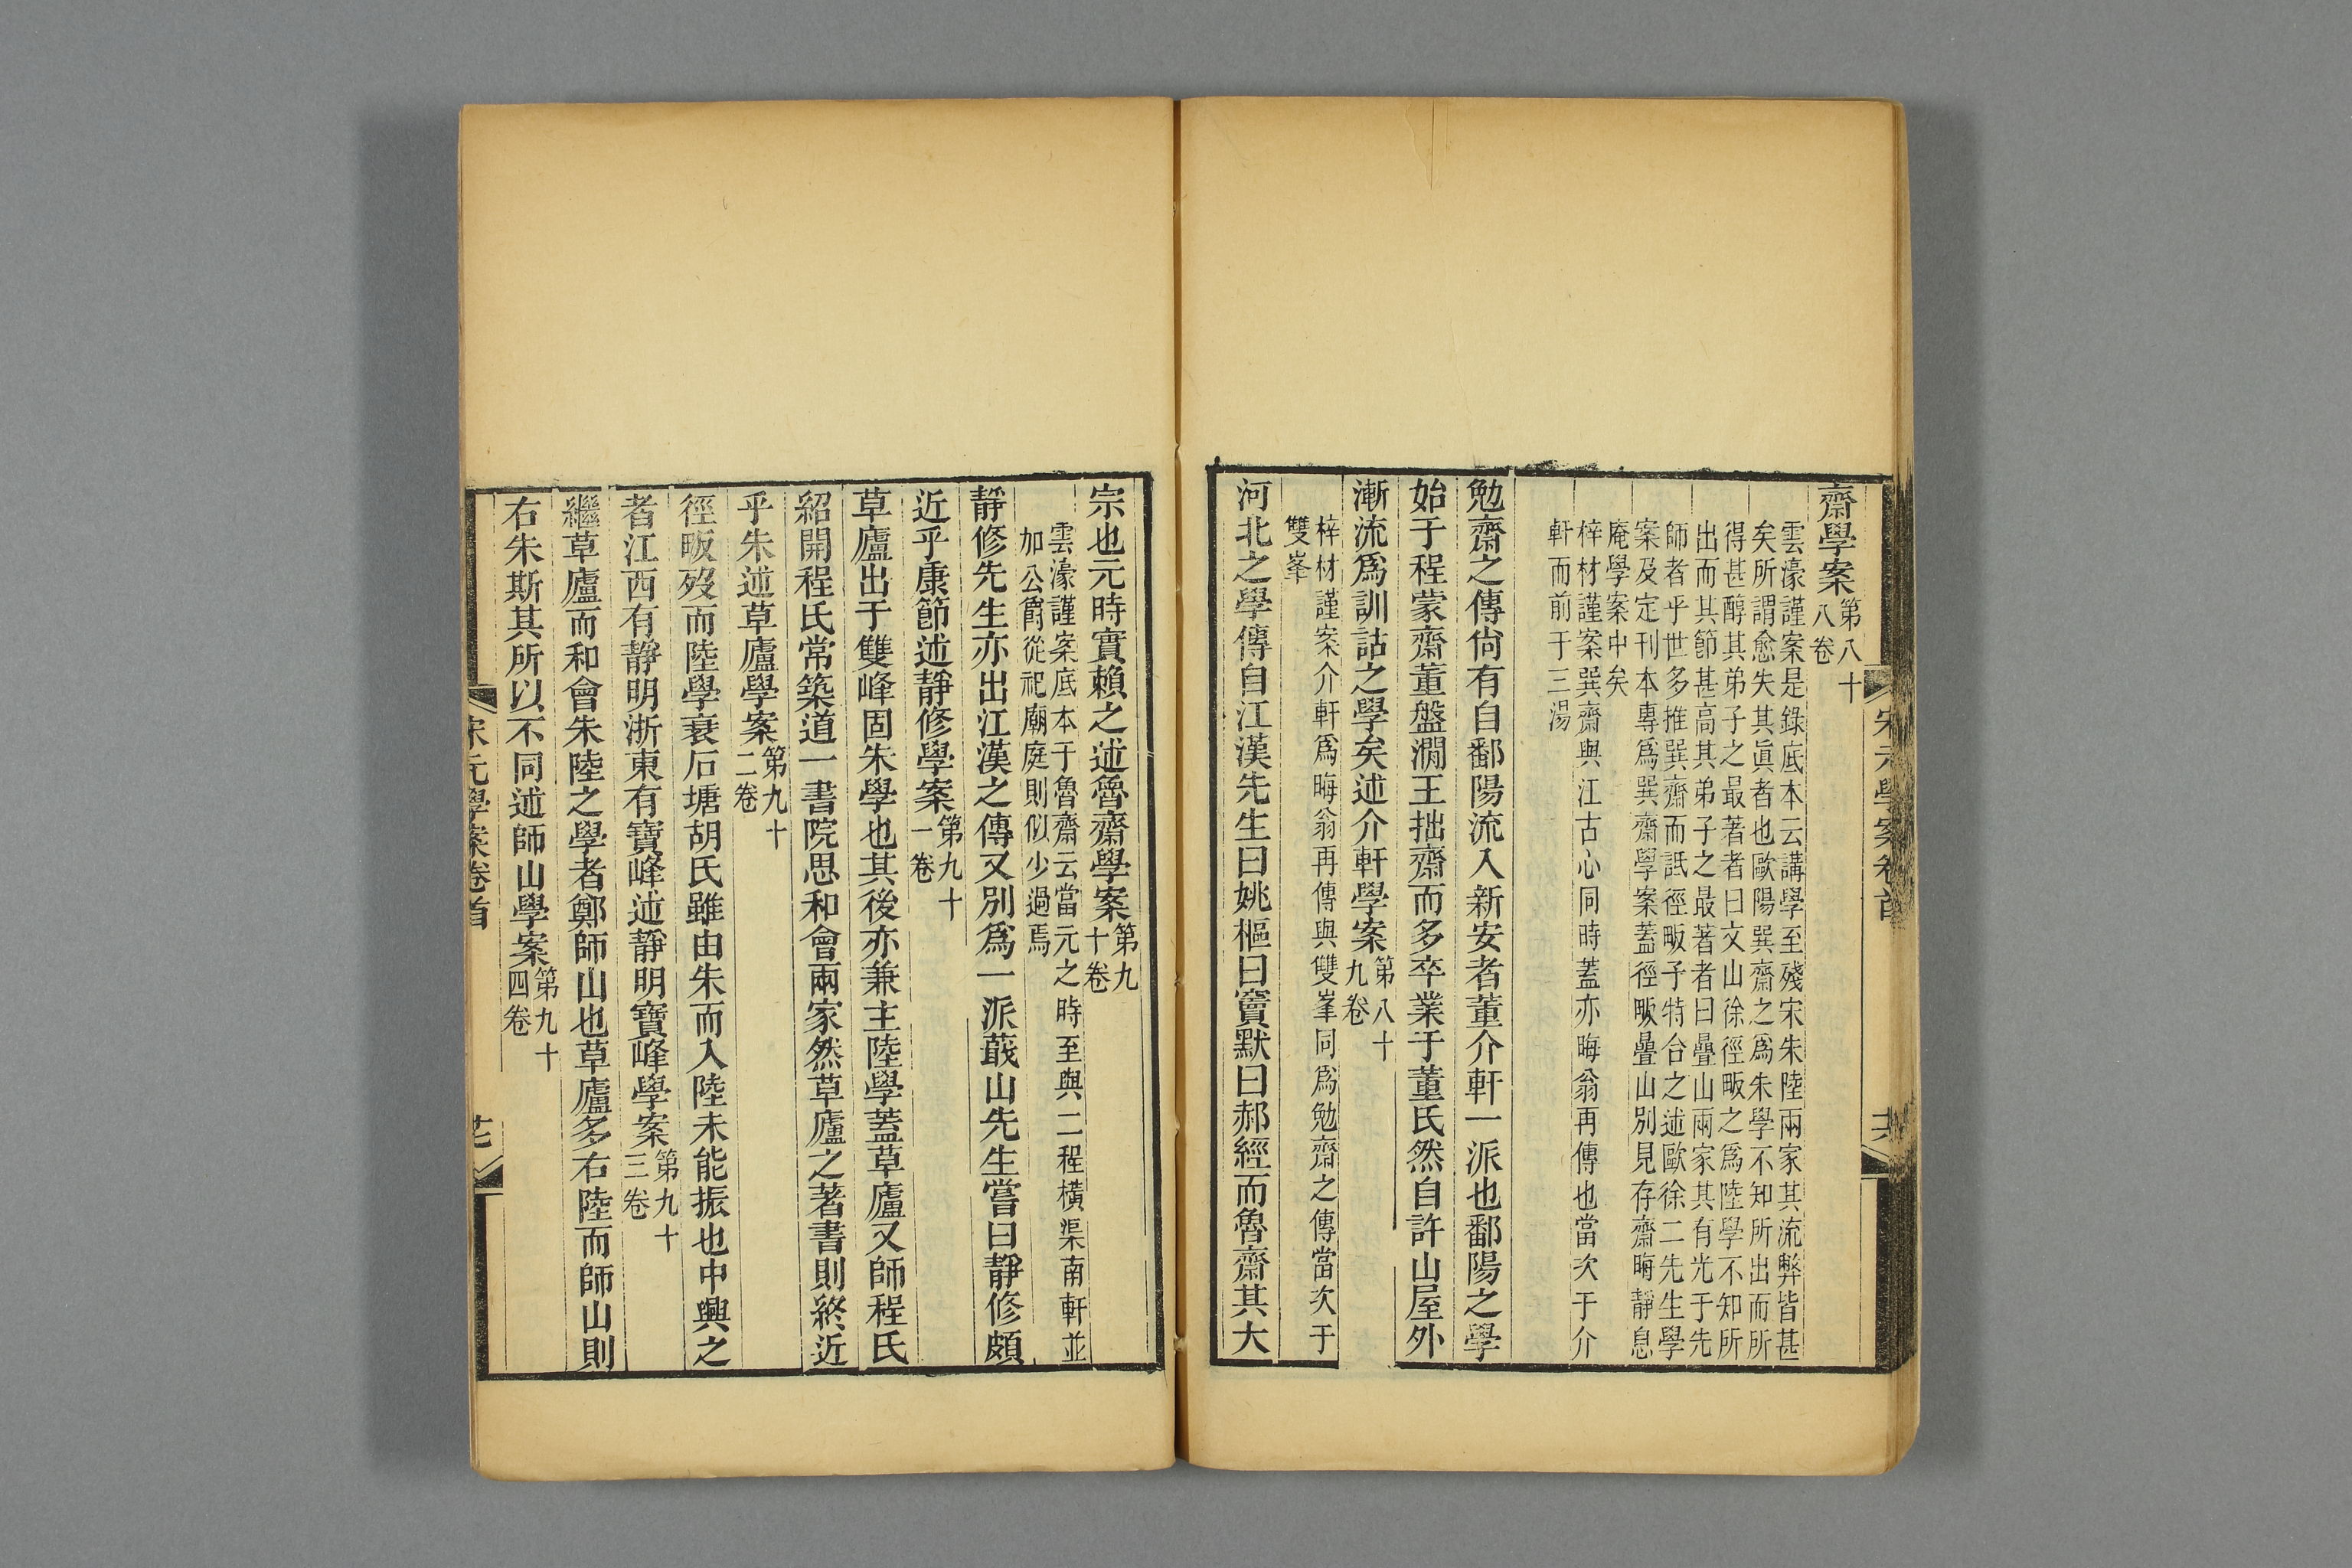 齋學案第八十
八卷
雲濠謹案是錄底本云講學至殘宋朱陸兩家其流弊皆甚
矣所謂愈失其眞者也歐陽巽齋之爲朱學不知所出而所
得甚醇其弟子之最著者曰文山徐徑畈之爲陸學不知所
出而其節甚高其弟子之最著者曰疊山兩家其有光于先
師者乎世多推巽齋而詆徑畈予特合之述歐徐二先生學
案及定刊本專爲巽齋學案蓋徑畈疊山別見存齋晦靜息
庵學案中矣
梓材謹案巽齋與江古心同時蓋亦晦翁再傳也當次于介
軒而前于三湯
勉齋之傳尙有自鄱陽流入新安者董介軒一派也鄱陽之學
始于程蒙齋董盤澗王拙齋而多卒業于董氏然自許山屋外
漸流爲訓詁之學矣述介軒學案第八十
九卷
梓材謹案介軒爲晦翁再傳與雙峯同爲勉齋之傳當次于
雙峯
河北之學傳自江漢先生曰姚樞曰竇默曰郝經而魯齋其大
宋元學案卷首
宗也元時實賴之述魯齋學案第九
十卷
雲濠謹案底本于魯齋云當元之時至與二程橫渠南軒並
加公爵從祀廟庭則似少過焉
靜修先生亦出江漢之傳又別爲一派蕺山先生嘗曰靜修頗
近乎康節述靜修學案第九十
一卷
草廬出于雙峰固朱學也其後亦兼主陸學蓋草廬又師程氏
紹開程氏常築道一書院思和會兩家然草廬之著書則終近
乎朱述草廬學案第九十
二卷
徑畈歿而陸學衰石塘胡氏雖由朱而入陸未能振也中興之
者江西有靜明浙東有寶峰述靜明寶峰學案第九十
三卷
繼草廬而和會朱陸之學者鄭師山也草廬多右陸而師山則
右朱斯其所以不同述師山學案第九十
四卷
宋元學案卷首